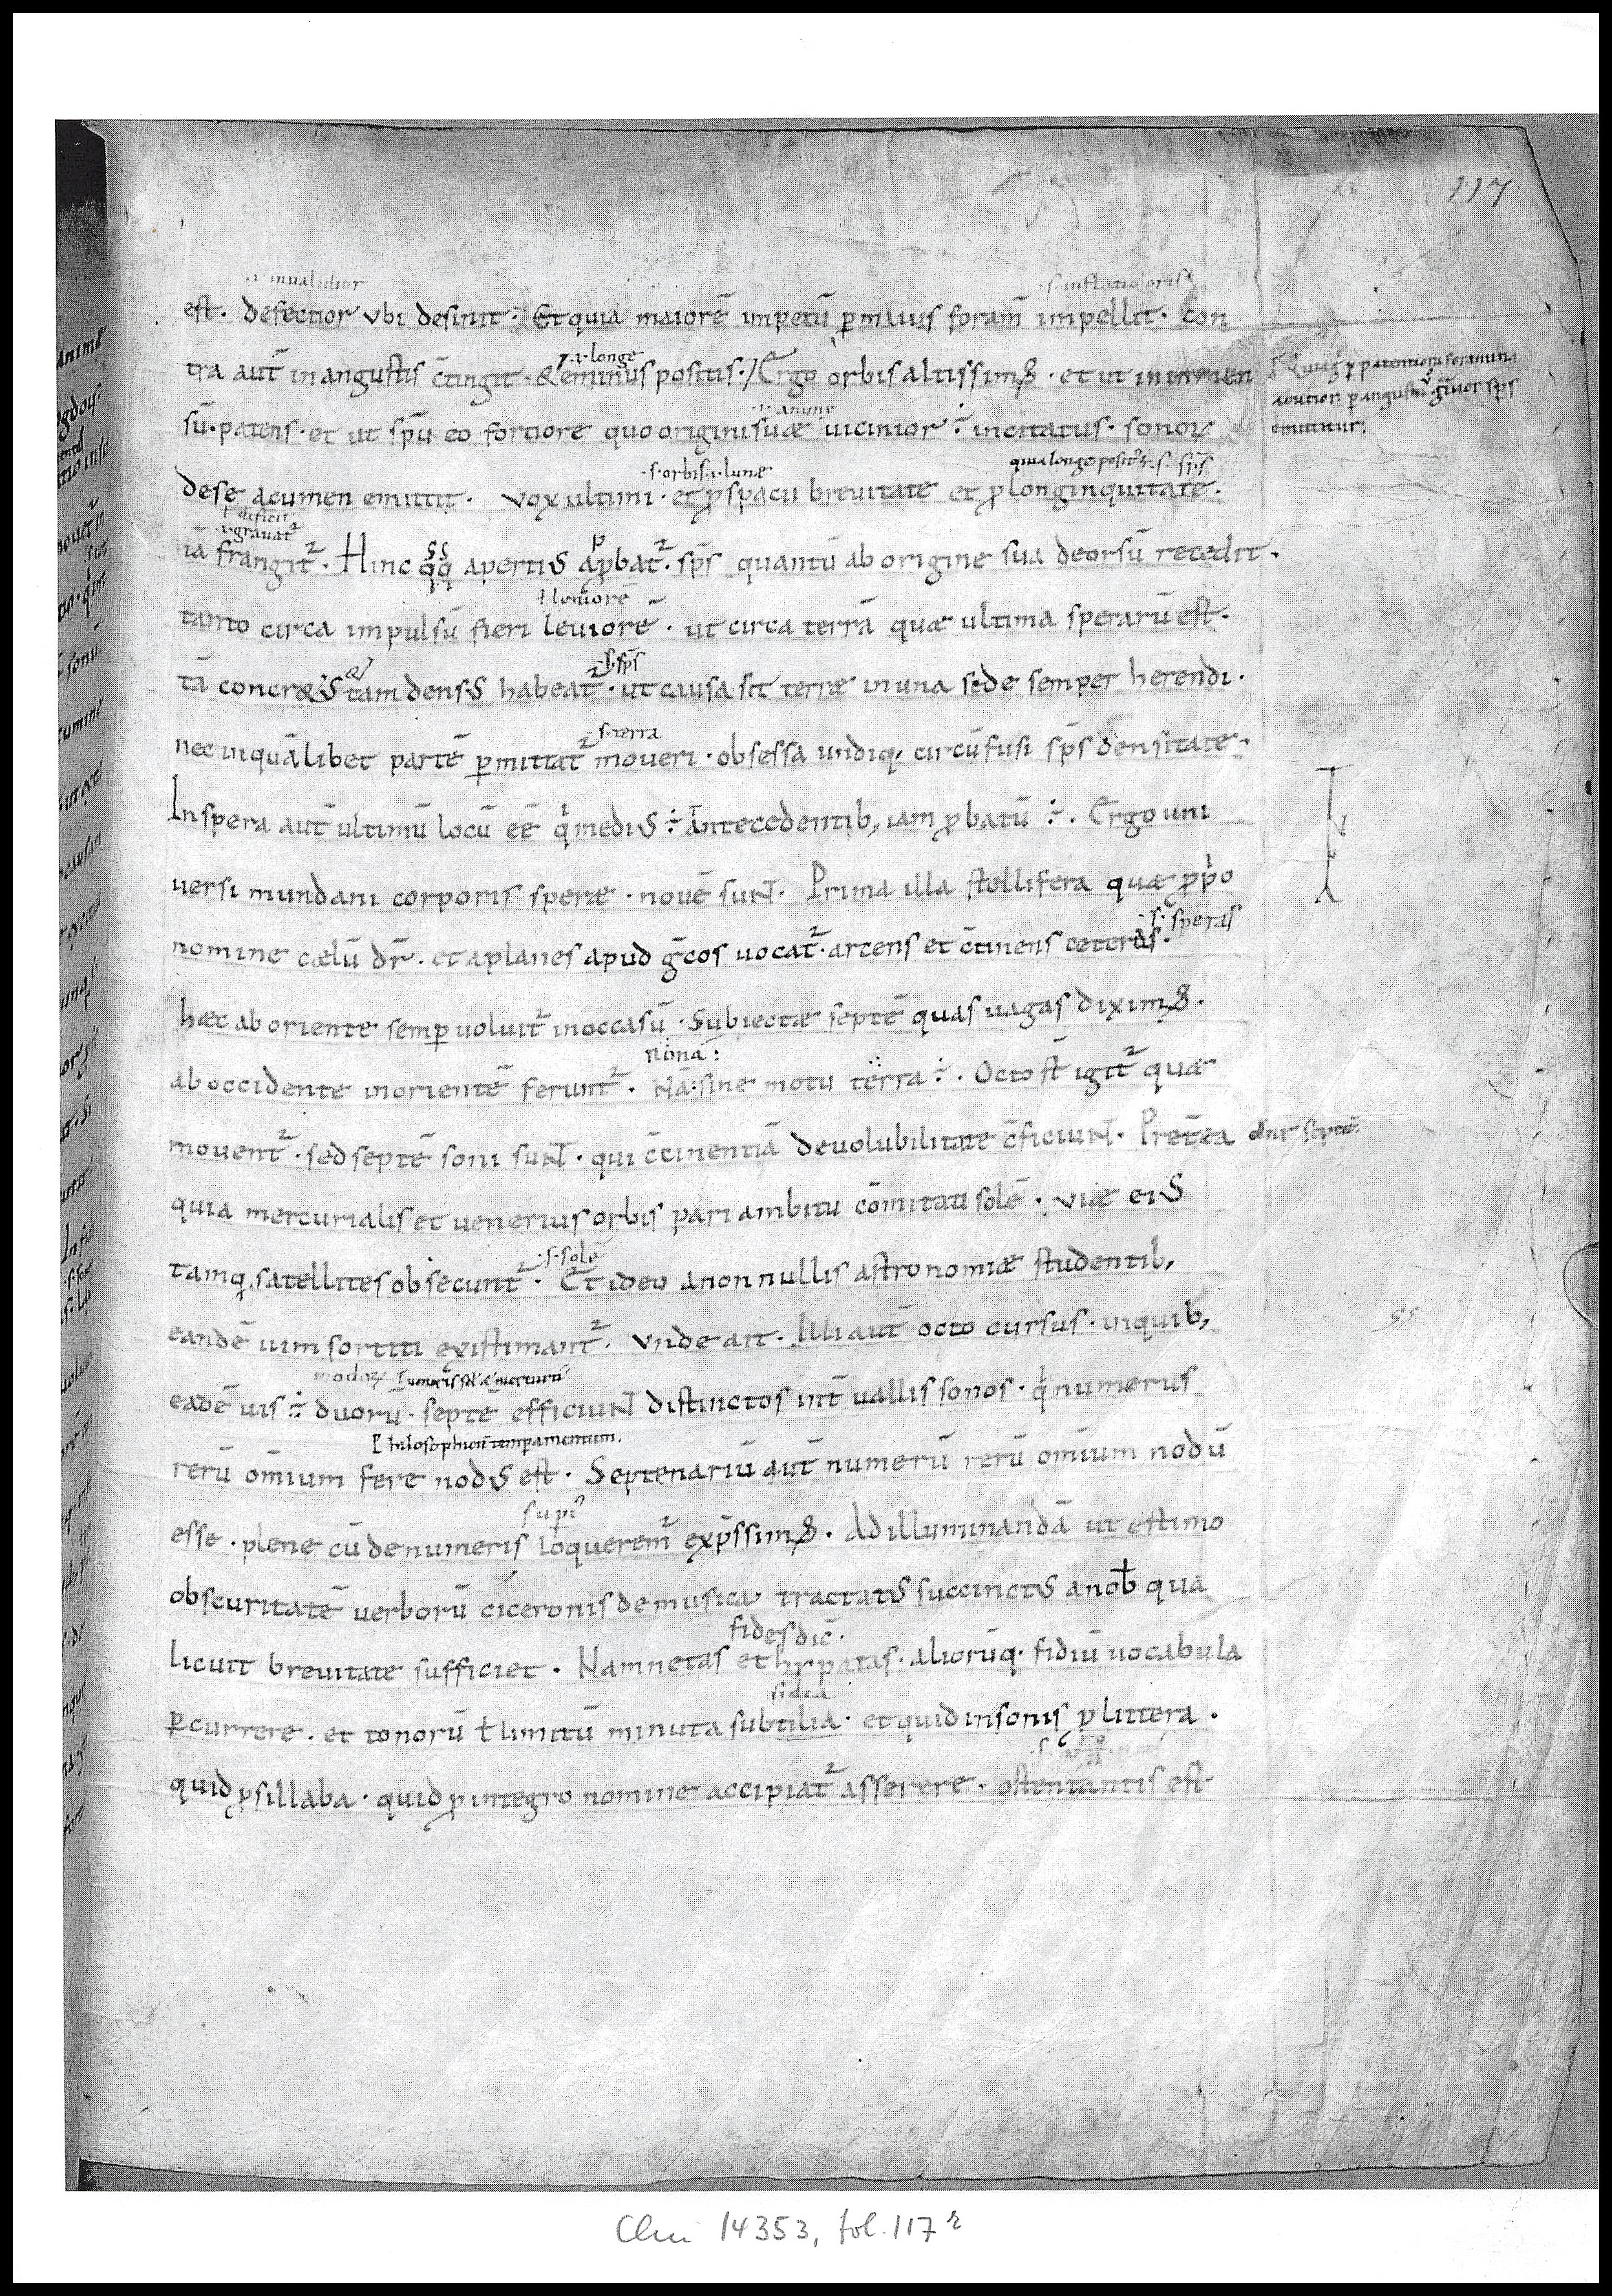 117
.i. inualidior
.s. inflatioris
est. defectior vbi desinit. Et quia maiorē impetū ꝑ maius foram̄ impellit. Con
.i. longe
tra aut̄ in angustis c̄tingit. & eminus positis. Ergo orbis altissimꝰ. et ut in inmen
.i. anime
sū. patens. et ut sp̄u eo fortiore quo origini suæ uicinior ÷ incitatus. sonorꝝ
.s. orbis .i. lunæ
qui a longe posit ÷ .s.
de se acumen emittit. vox ultimi. et ꝓ spacii breuitate et ꝓ longinquitate.
ł deficit
.i. grauat᷑
iā frangit᷑. Hinc qq apertiꝰ aꝓbat᷑. sp̄s quantū ab origine sua deorsū recedit.
ł leniorē
tanto circa impulsū fieri leuiorē. ut circa terrā quæ ultima sperarū est.
.s. sp̄s
tā concr&ꝰ & tam densꝰ habeat᷑. ut causa sit terræ in una sede semper herendi.
.s. terra
nec in quālibet partē ꝑmittat᷑ moueri. obsessa undiq, circūfusi sp̄s densitate.
In spera aut̄ ultimū locū ēē q̇ mediꝰ ÷ antecedentib, iam ꝓbatū ÷. Ergo uni
uersi mundani corporis speræ. nouē suNt. Prima illa stellifera quæ ꝓpⁱo
.s. speras
nomine cælū dr̄. et aplanes apud ḡcos uocat᷑. arcens et c̄tinens ceteras.
hæc ab oriente semꝑ uoluit᷑ in occasū. Subiectæ septē quas uagas diximꝰ.
nona:
ab occidente in orientē ferunt᷑. Nā sine motu terra ÷. Octo st̄ igit᷑ quæ
mouent᷑. sed septē soni suNt. qui c̄cinentiā de uolubilitate c̄ficiuNt. Pret̄ea
quia mercurialis et uenerius orbis pari ambitu comitati solē. viæ eiꝰ
.s. solē
tamq, satellites obsecunt᷑. Et ideo a nonnullis astronomiæ studentib,
eandē uim sortiti existimant᷑. vnde ait. Illi aut̄ octo cursus. in quib,
eadē uis ÷ duorū. septē efficiuNt distinctos int̄uallis sonos. q̇ numerus
Philosophicū temꝑamentum.
rerū om̄ium fere nodꝰ est. Septenariū aut̄ numerū rerū om̄ium nodū
supⁱ
esse. plene cū de numeris loquerem᷑ exp̄ssimꝰ. Ad illuminandā ut estimo
obscuritatē uerborū ciceronis de musica tractatꝰ succinctꝰ a nob̄ qua
fides dic̄.
licuit breuitate sufficiet. Nam netas et hypatas. aliorūq. fidiū uocabula
ꝑcurrere. et tonorū ł limitū minuta subtilia. et quid in sonis ꝓ littera.
quid ꝓ sillaba. quid ꝓ integro nomine accipiat᷑ asserere. ostentantis est
Clm 14353, fol. 117 r